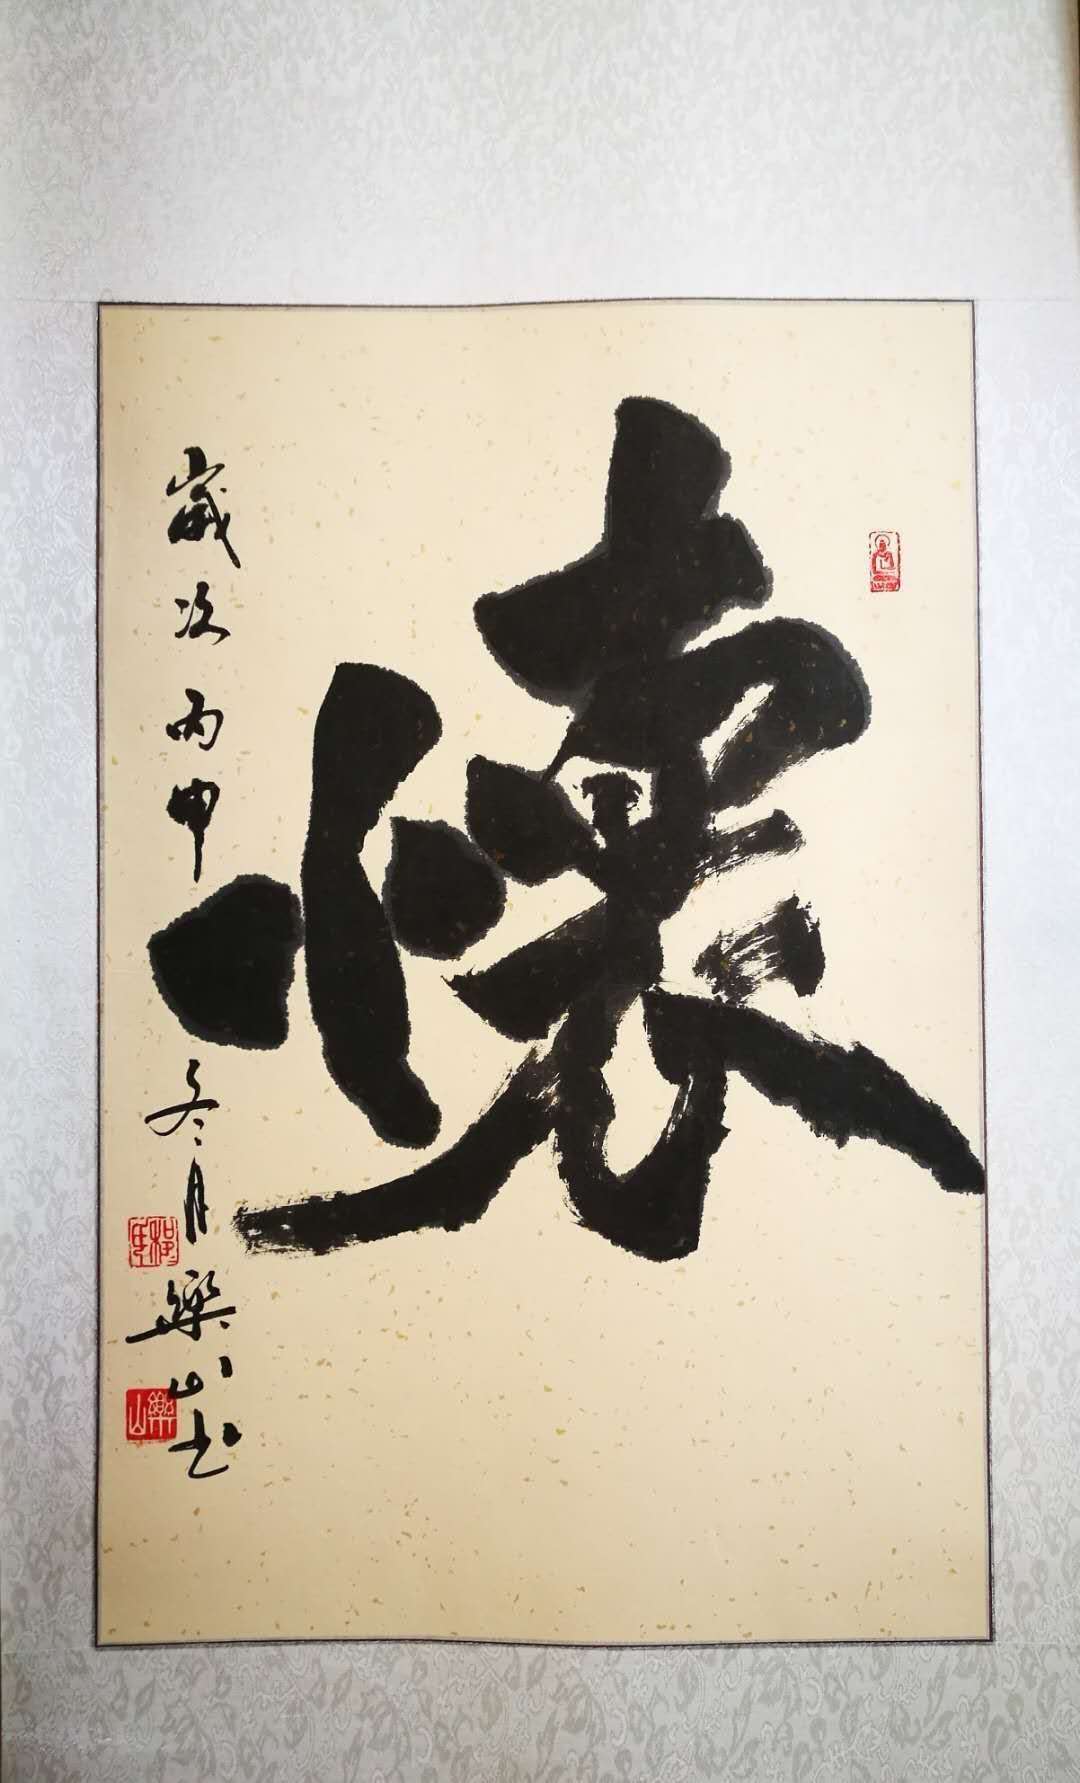 懷
歲次丙申冬月樂山书
樂山